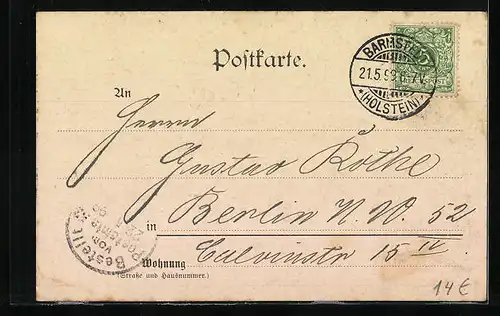 Postkarte.
BARMSTEDT
21.5.99. 6-7V.
*(HOLSTEIN)*
An
Herrn
Gustav Kothe
in Berlin N.W. 52
Calvinstr 15 IV.
Wohnung
(Straße und Hausnummer.)
Bestellt
vom
Postamte
14€